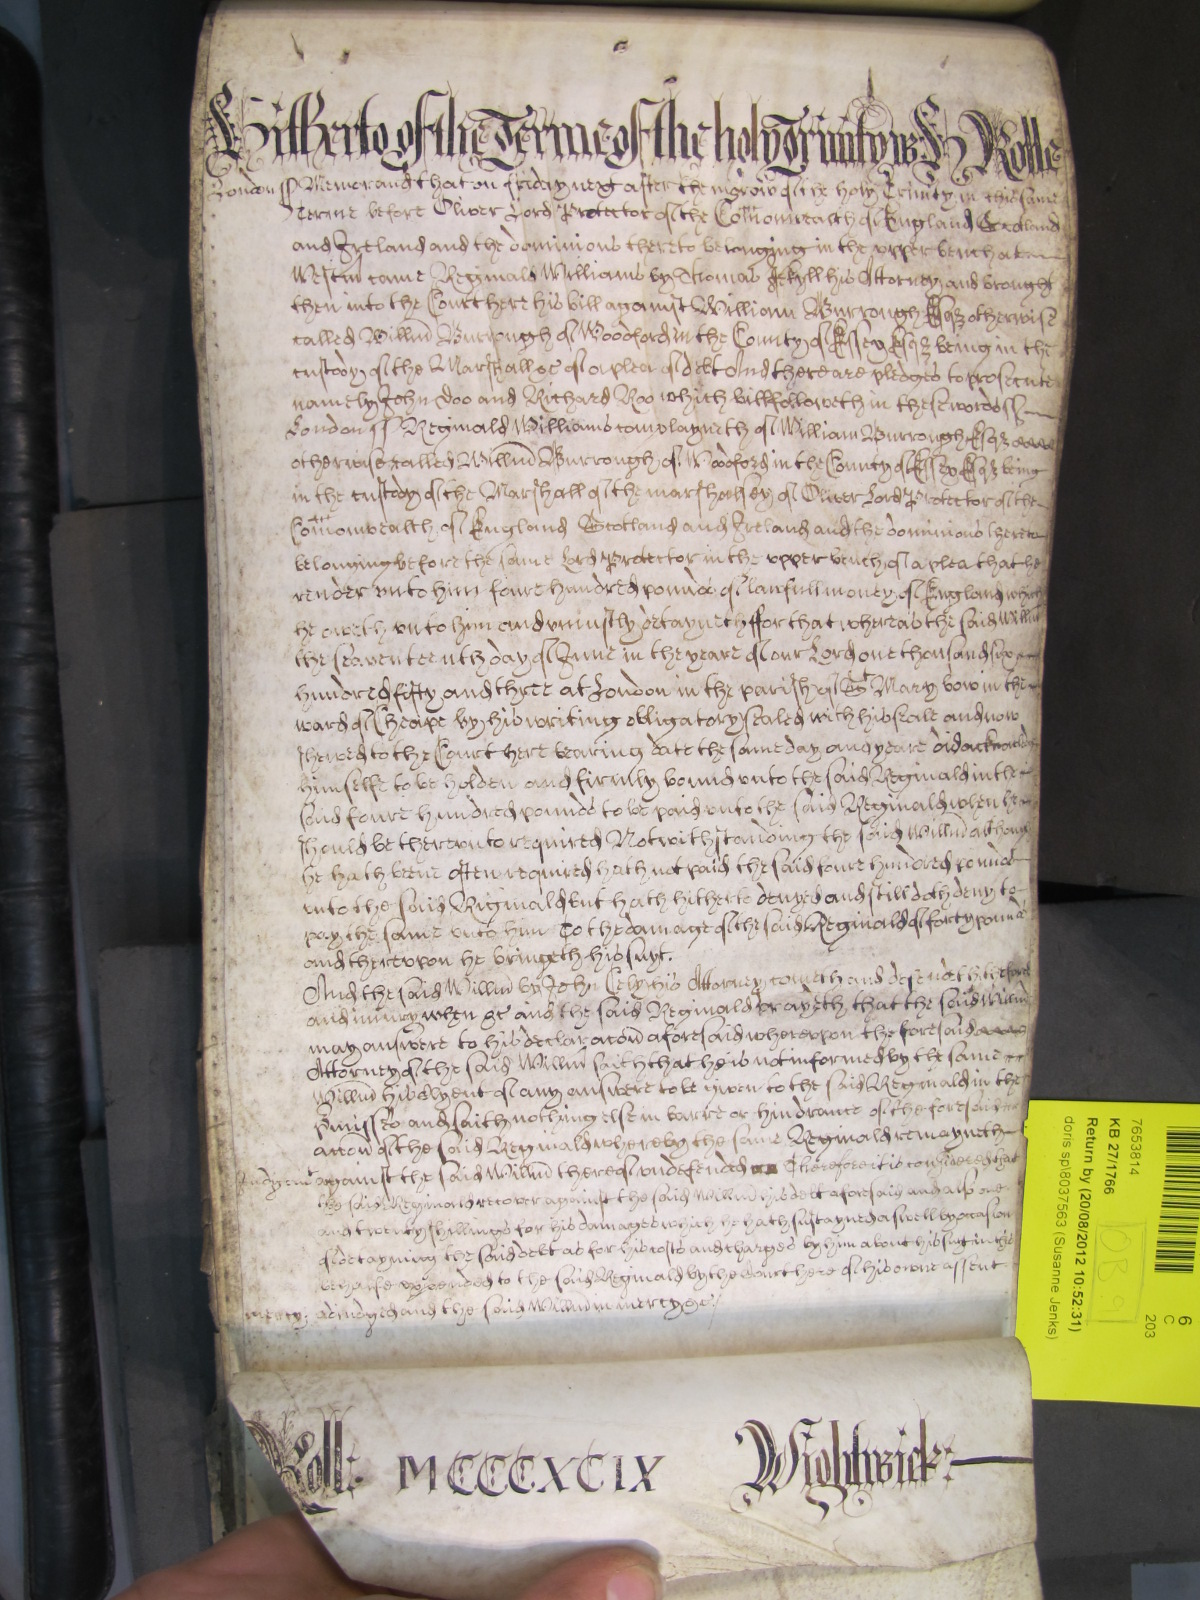 Hitherto of the Terme of the holy Trinity is Rolle
London ss Memorand that on friday next after the morow of the holy Trinity in this same
Terme before Oliver Lord Protector of the Comonwealth of England Scotland
and Ireland and the dominions thereto belonging in the upper bench at
Westm came Reginald Williams by Thomas Jekyll his Attorney and brought
then into the Court here his bill against William Burrough Esqz otherwise
called Willm Burrough of Woodford in the County of Essex Esqz being in the
custody of the Marshall &c of a plea of debt And there are pledges to prosecute
namely John Doo and Richard Roo which bill followeth in these words ss
London ss Reginald Williams complayneth of William Burrough Esqz
otherwise called Willm Burrough of Woodford in the County of Essex Esqz being
in the custody of the Marshall of the marshalsey of Oliver Lord Protector of the
Comonwealth of England Scotland and Ireland and the dominions thereto
belonging before the same Lord Protector in the upper bench of a plea that he
render unto him foure hundred pounds of lawfull money of England which
he oweth unto him and uniustly detayneth ffor that whereas the said Willm
the seaventeenth day of June in the yeare of our Lord one thousand six
hundred fifty and three at London in the parish of St Mary bow in the
ward of Cheape by his writing obligatory sealed with his seale and now
shewed to the Court here bearing date the same day and yeare did acknowledge
himselfe to be holden and firmly bound unto the said Reginald in the
said foure hundred pounds to be paid unto the said Reginald when he
should be thereunto required Notwithstanding the said Willm although
he hath beene often required hath not paid the said foure hundred pounds
unto the said Reginald but hath hitherto denyed and still doth deny to
pay the same unto him To the damage of the said Reginald of forty pounds
and thereupon he bringeth his suyt.
And the said Willm by John Cely his Attorney cometh and defendeth the force
and iniury when &c and the said Reginald prayeth that the said Willm
may answere to his declaracon aforesaid whereupon the foresaid
Attorney of the said Willm saith that he is not informed by the same
Willm his clyent of any answere to be given to the said Reginald in the
premisses and saith nothing else in barre or hindrance of the foresaid
accon of the said Reginald whereby the same Reginald remayneth
Judgmt against the said Willm thereof undefended Therefore it is considered that
the said Reginald recover against the said Willm his debt aforesaid and also one
and twenty shillings for his damages which he hath sustayned aswell by occasion
of detayning the said debt as for his costs and charges by him about his suyt in this
behalfe expended to the said Reginald by the Court here of his owne assent
mercy: adiudged and the said Willm in mercy &c:/
Roll: MCCCXCIX Wightwick:
7653814
KB 27/1766
Return by (20/08/2012 10:52:31)
doris sp\8037563 (Susanne Jenks)
6
C
203